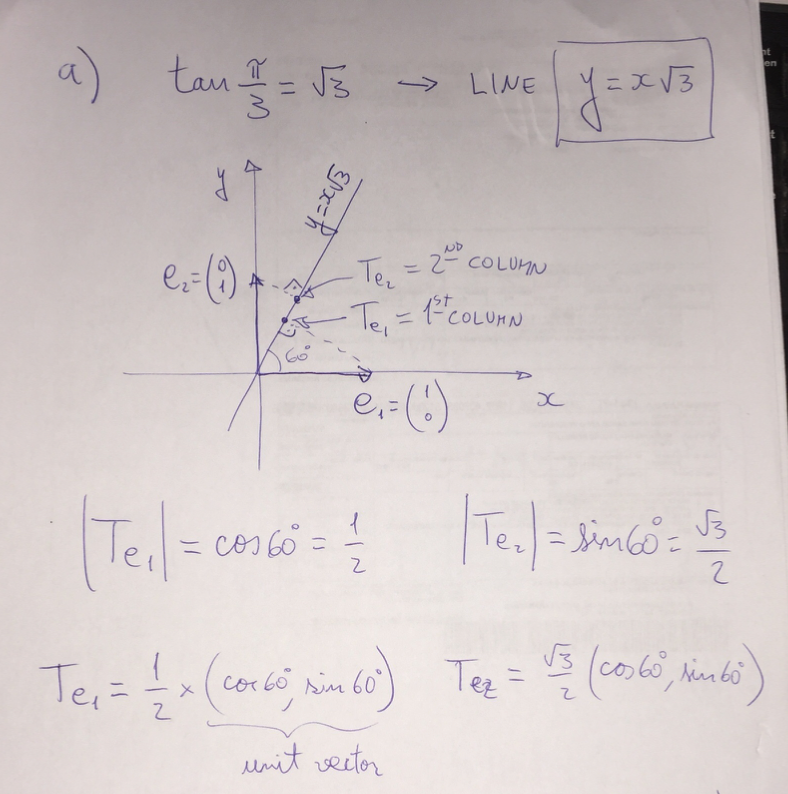 a) tan π/3 = √3 → LINE y = x√3
y
y=x√3
e₂ = (0 1)
Te₂ = 2ND COLUMN
Te₁ = 1ST COLUMN
60°
x
e₁ = (1 0)
|Te₁| = cos60° = 1/2 |Te₂| = sin60° = √3/2
Te₁ = 1/2 × (cos60°, sin60°) Te₂ = √3/2 (cos60°, sin60°)
unit vector